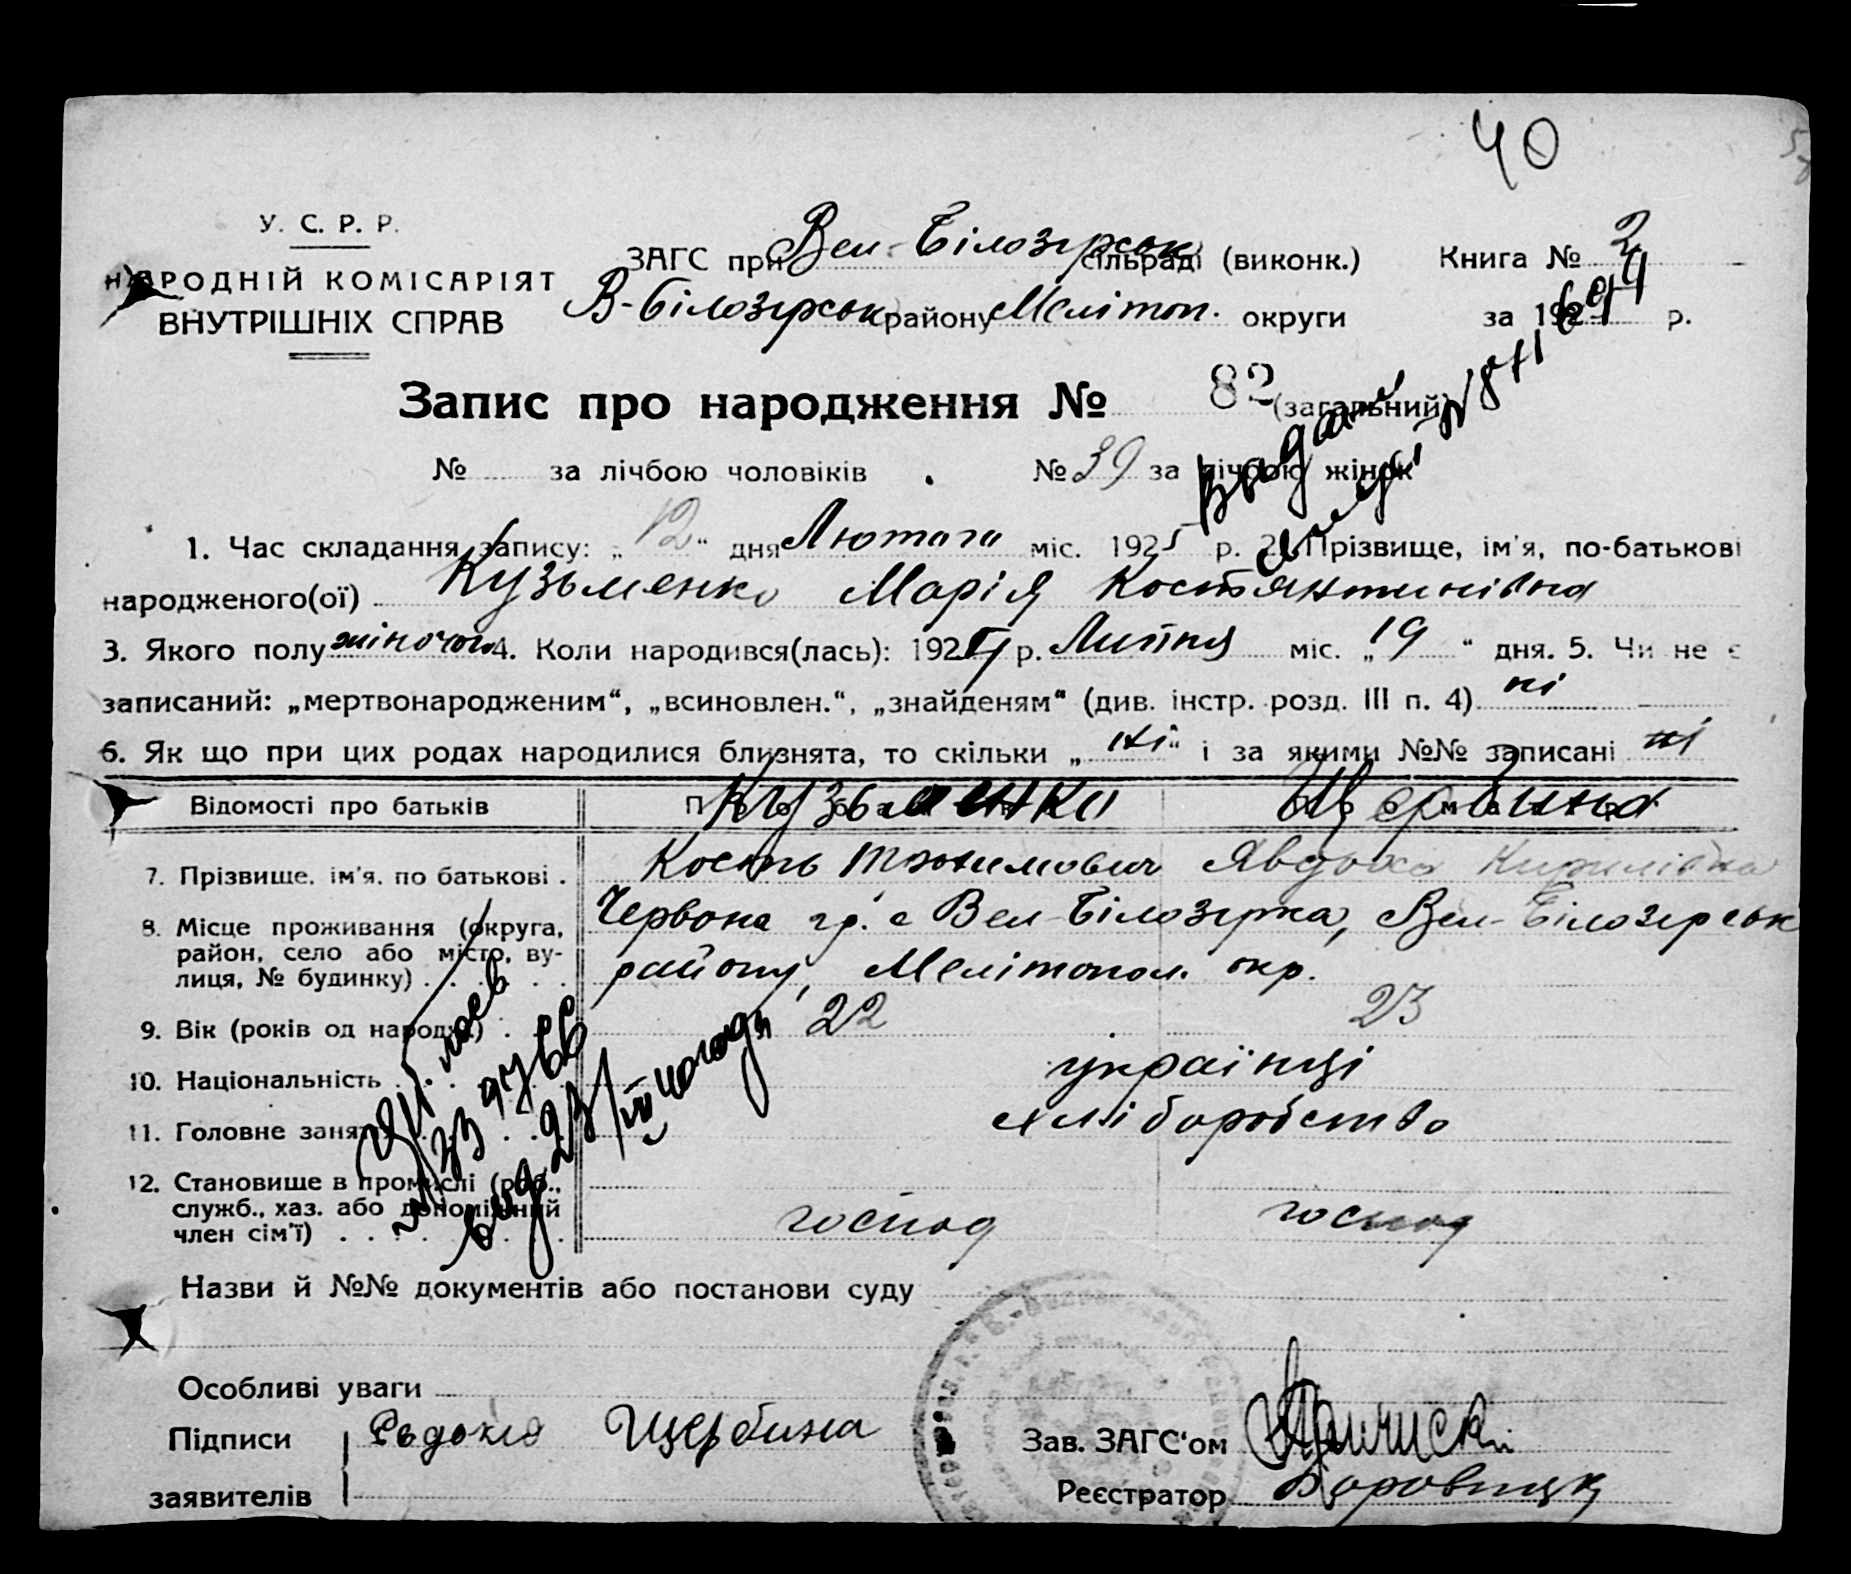 40
У. С. Р. Р.
НАРОДНІЙ КОМІСАРІЯТ
ВНУТРІШНІХ СПРАВ
ЗАГС при Вел-Білозерськ сільраді (виконк.) Книга № 2
В-Білозерськ району Меліт оп. округи за 192 р.
Запис про народження № 82 (загальний)
№ за лічбою чоловіків . № 39 за лічбою жінок
Видане
1. Час складання запису: „12“ дня Лютого міс. 1925 р. 2. Прізвище, ім'я, по-батькові
народженого(ої) Кузьменко Марія Костянтинівна
3. Якого полу жіночого 4. Коли народився(лась): 1924 р. Липня міс. „19“ дня. 5. Чи не є
записаний: „мертвонародженим“, „всиновлен.“, „знайденям“ (див. інстр. розд. III п. 4) ні
6. Як що при цих родах народилися близнята, то скільки „ні“ і за якими №№ записані ні
Відомості про батьків Кузьменко Щербина
7. Прізвище, ім'я, по батькові . Кость Явдоха Кирилівна
8. Місце проживання (округа, Червона гр. с Вел-Білозерка, Вел-Білозерськ
район, село або місто, ву-
лиця, № будинку) . . . . . . району, Мелітопол. окр.
9. Вік (років од народж.) . . 22 23
10. Національність . . . українці
11. Головне занят хліборобство
12. Становище в промислі (роб.,
служб., хаз. або допомічний
член сім'ї) . . . . господ господ
Назви й №№ документів або постанови суду
Особливі уваги
Підписи Євдокія Щербина Зав. ЗАГС'ом
заявителів Реєстратор